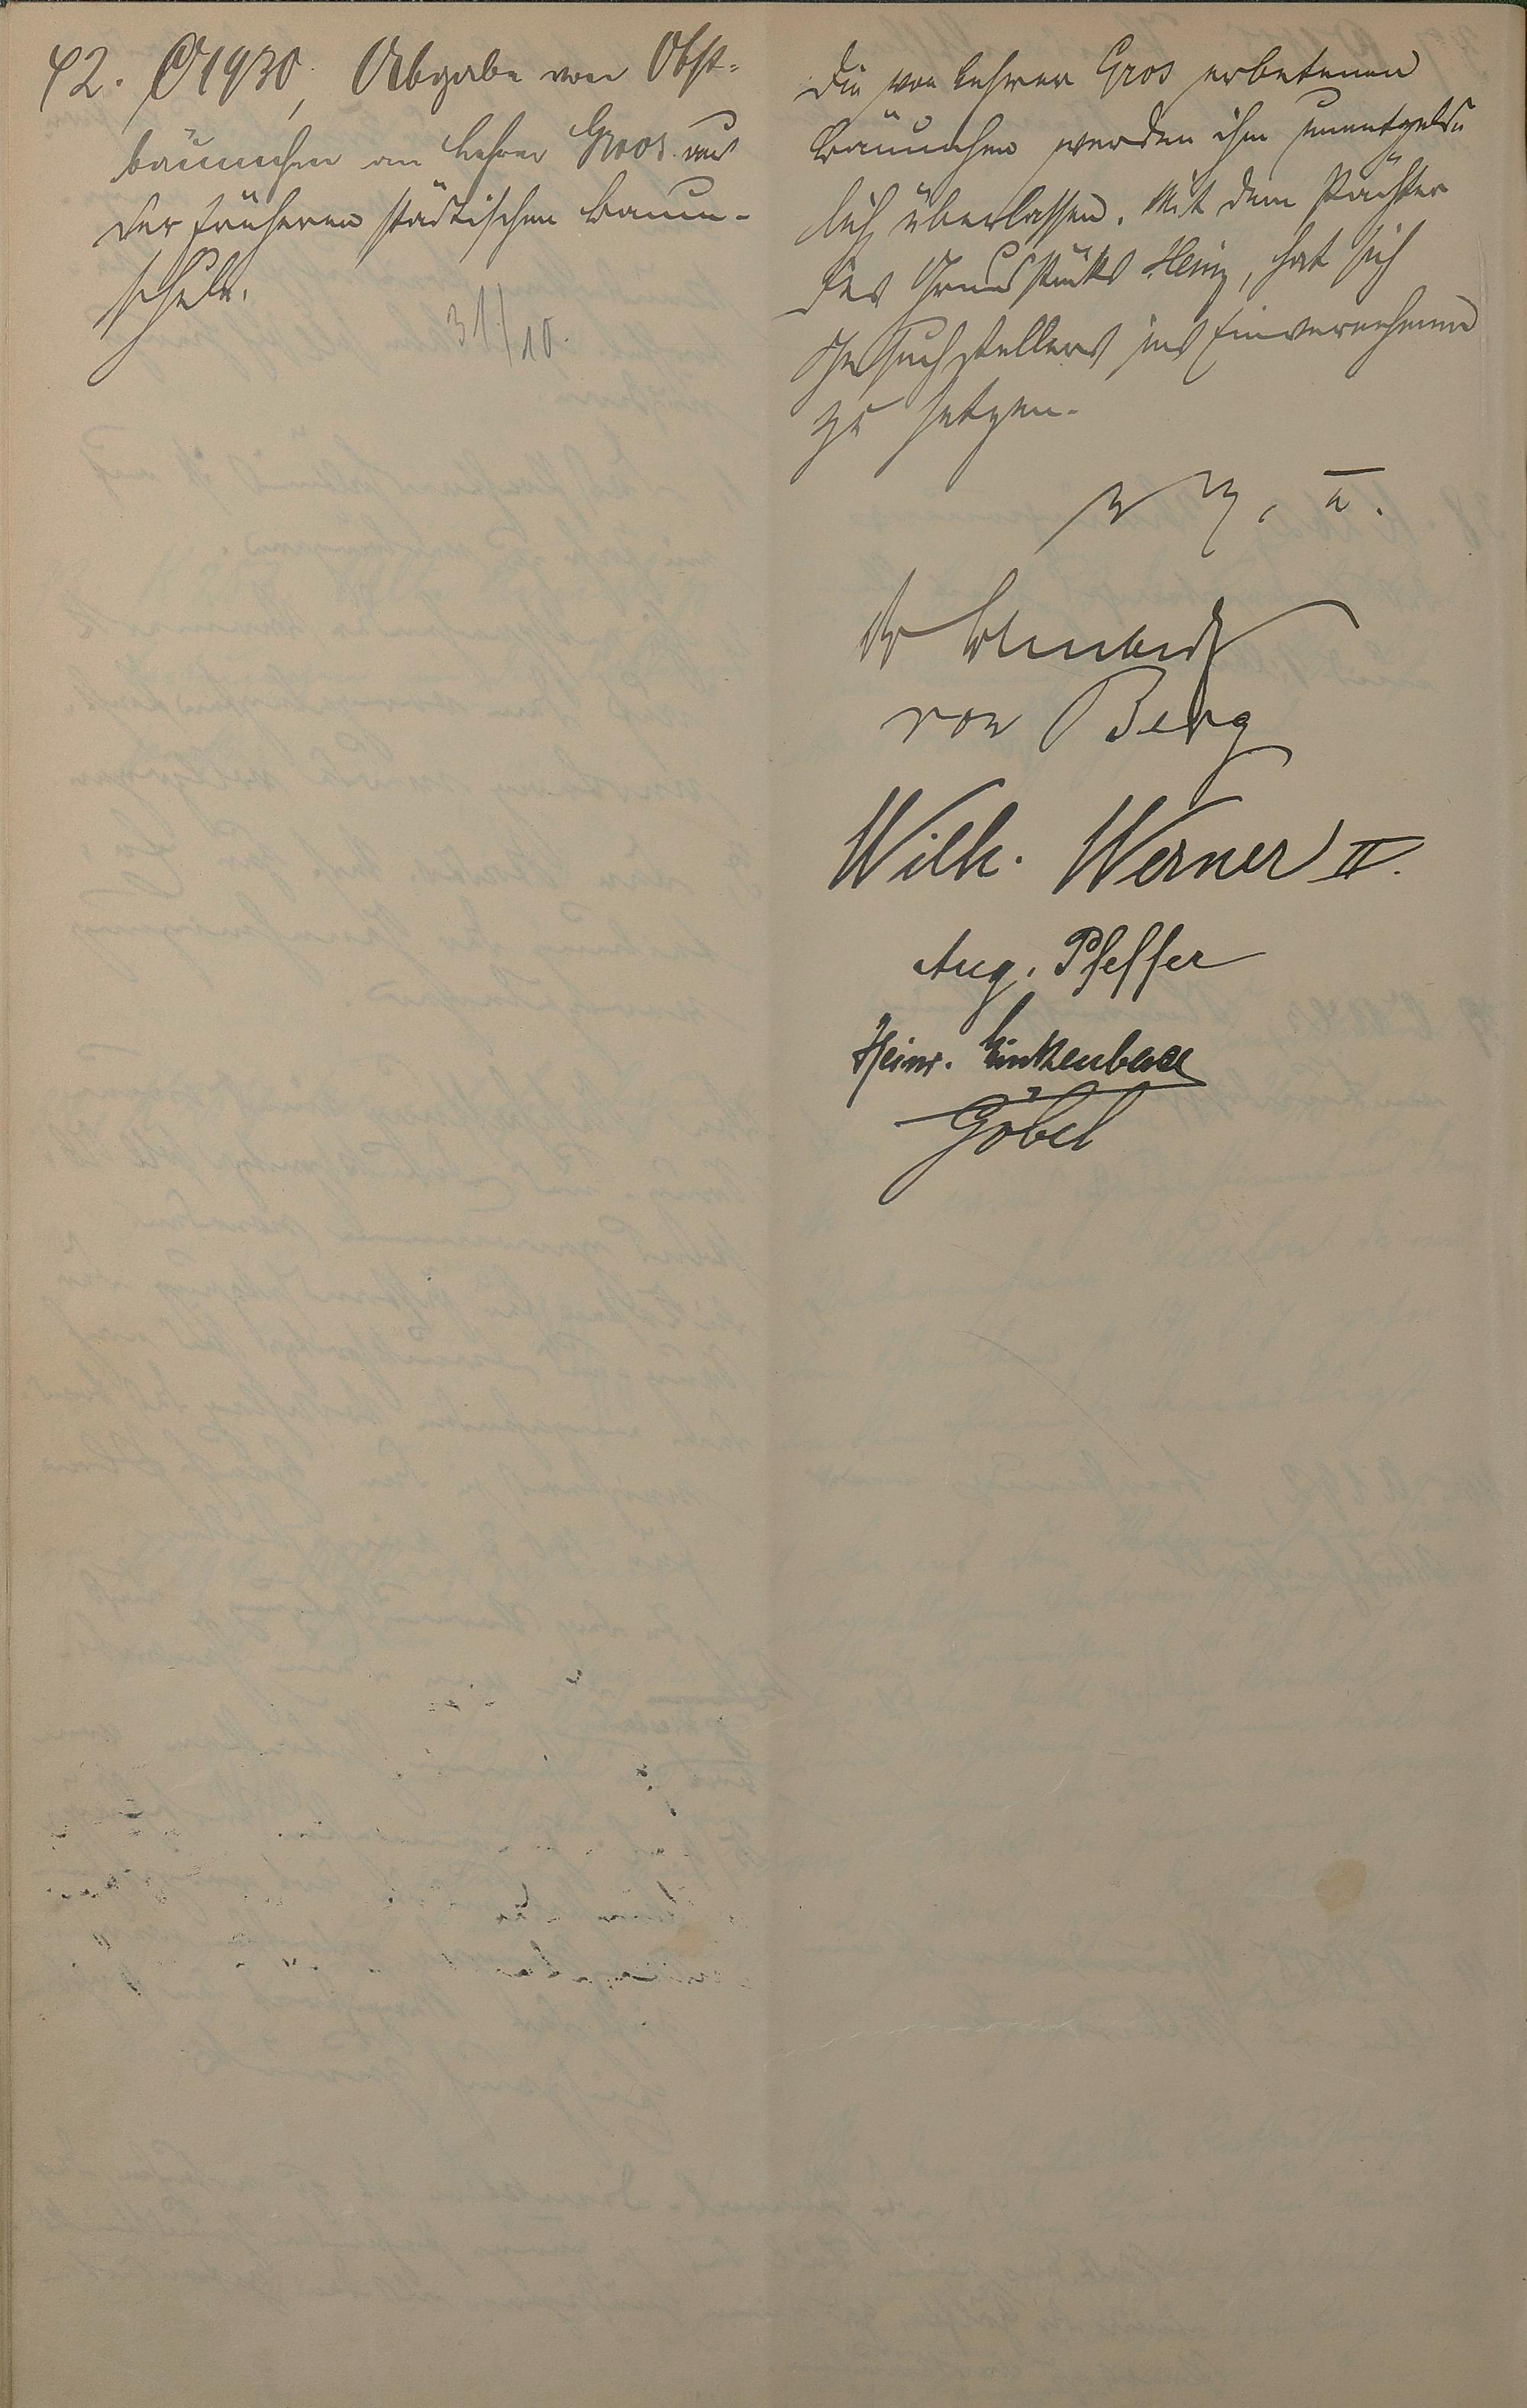 42. C 1930, Abgabe von Obst-
bäumchen an Lehrer Gros aus
der früheren städtischen Baum-
schule.
31/10.
Die von Lehrer Gros erbetenen
Bäumchen werden ihm unentgelt-
lich überlassen. Mit dem Pächter
des Grundstücks Heinz, hat sich
Gesuchsteller ins Einvernehmen
zu setzen.
v. g. u.
von Berg
Wilh. Werner II.
Aug. Pfeffer
Heinr.
Göbel